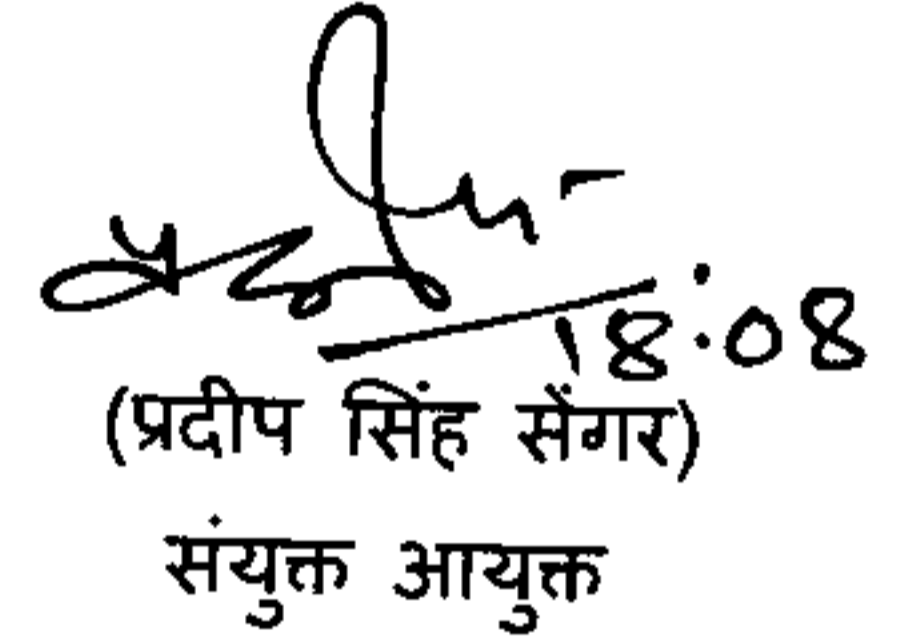 18:08
(प्रदीप सिंह सेंगर)
संयुक्त आयुक्त